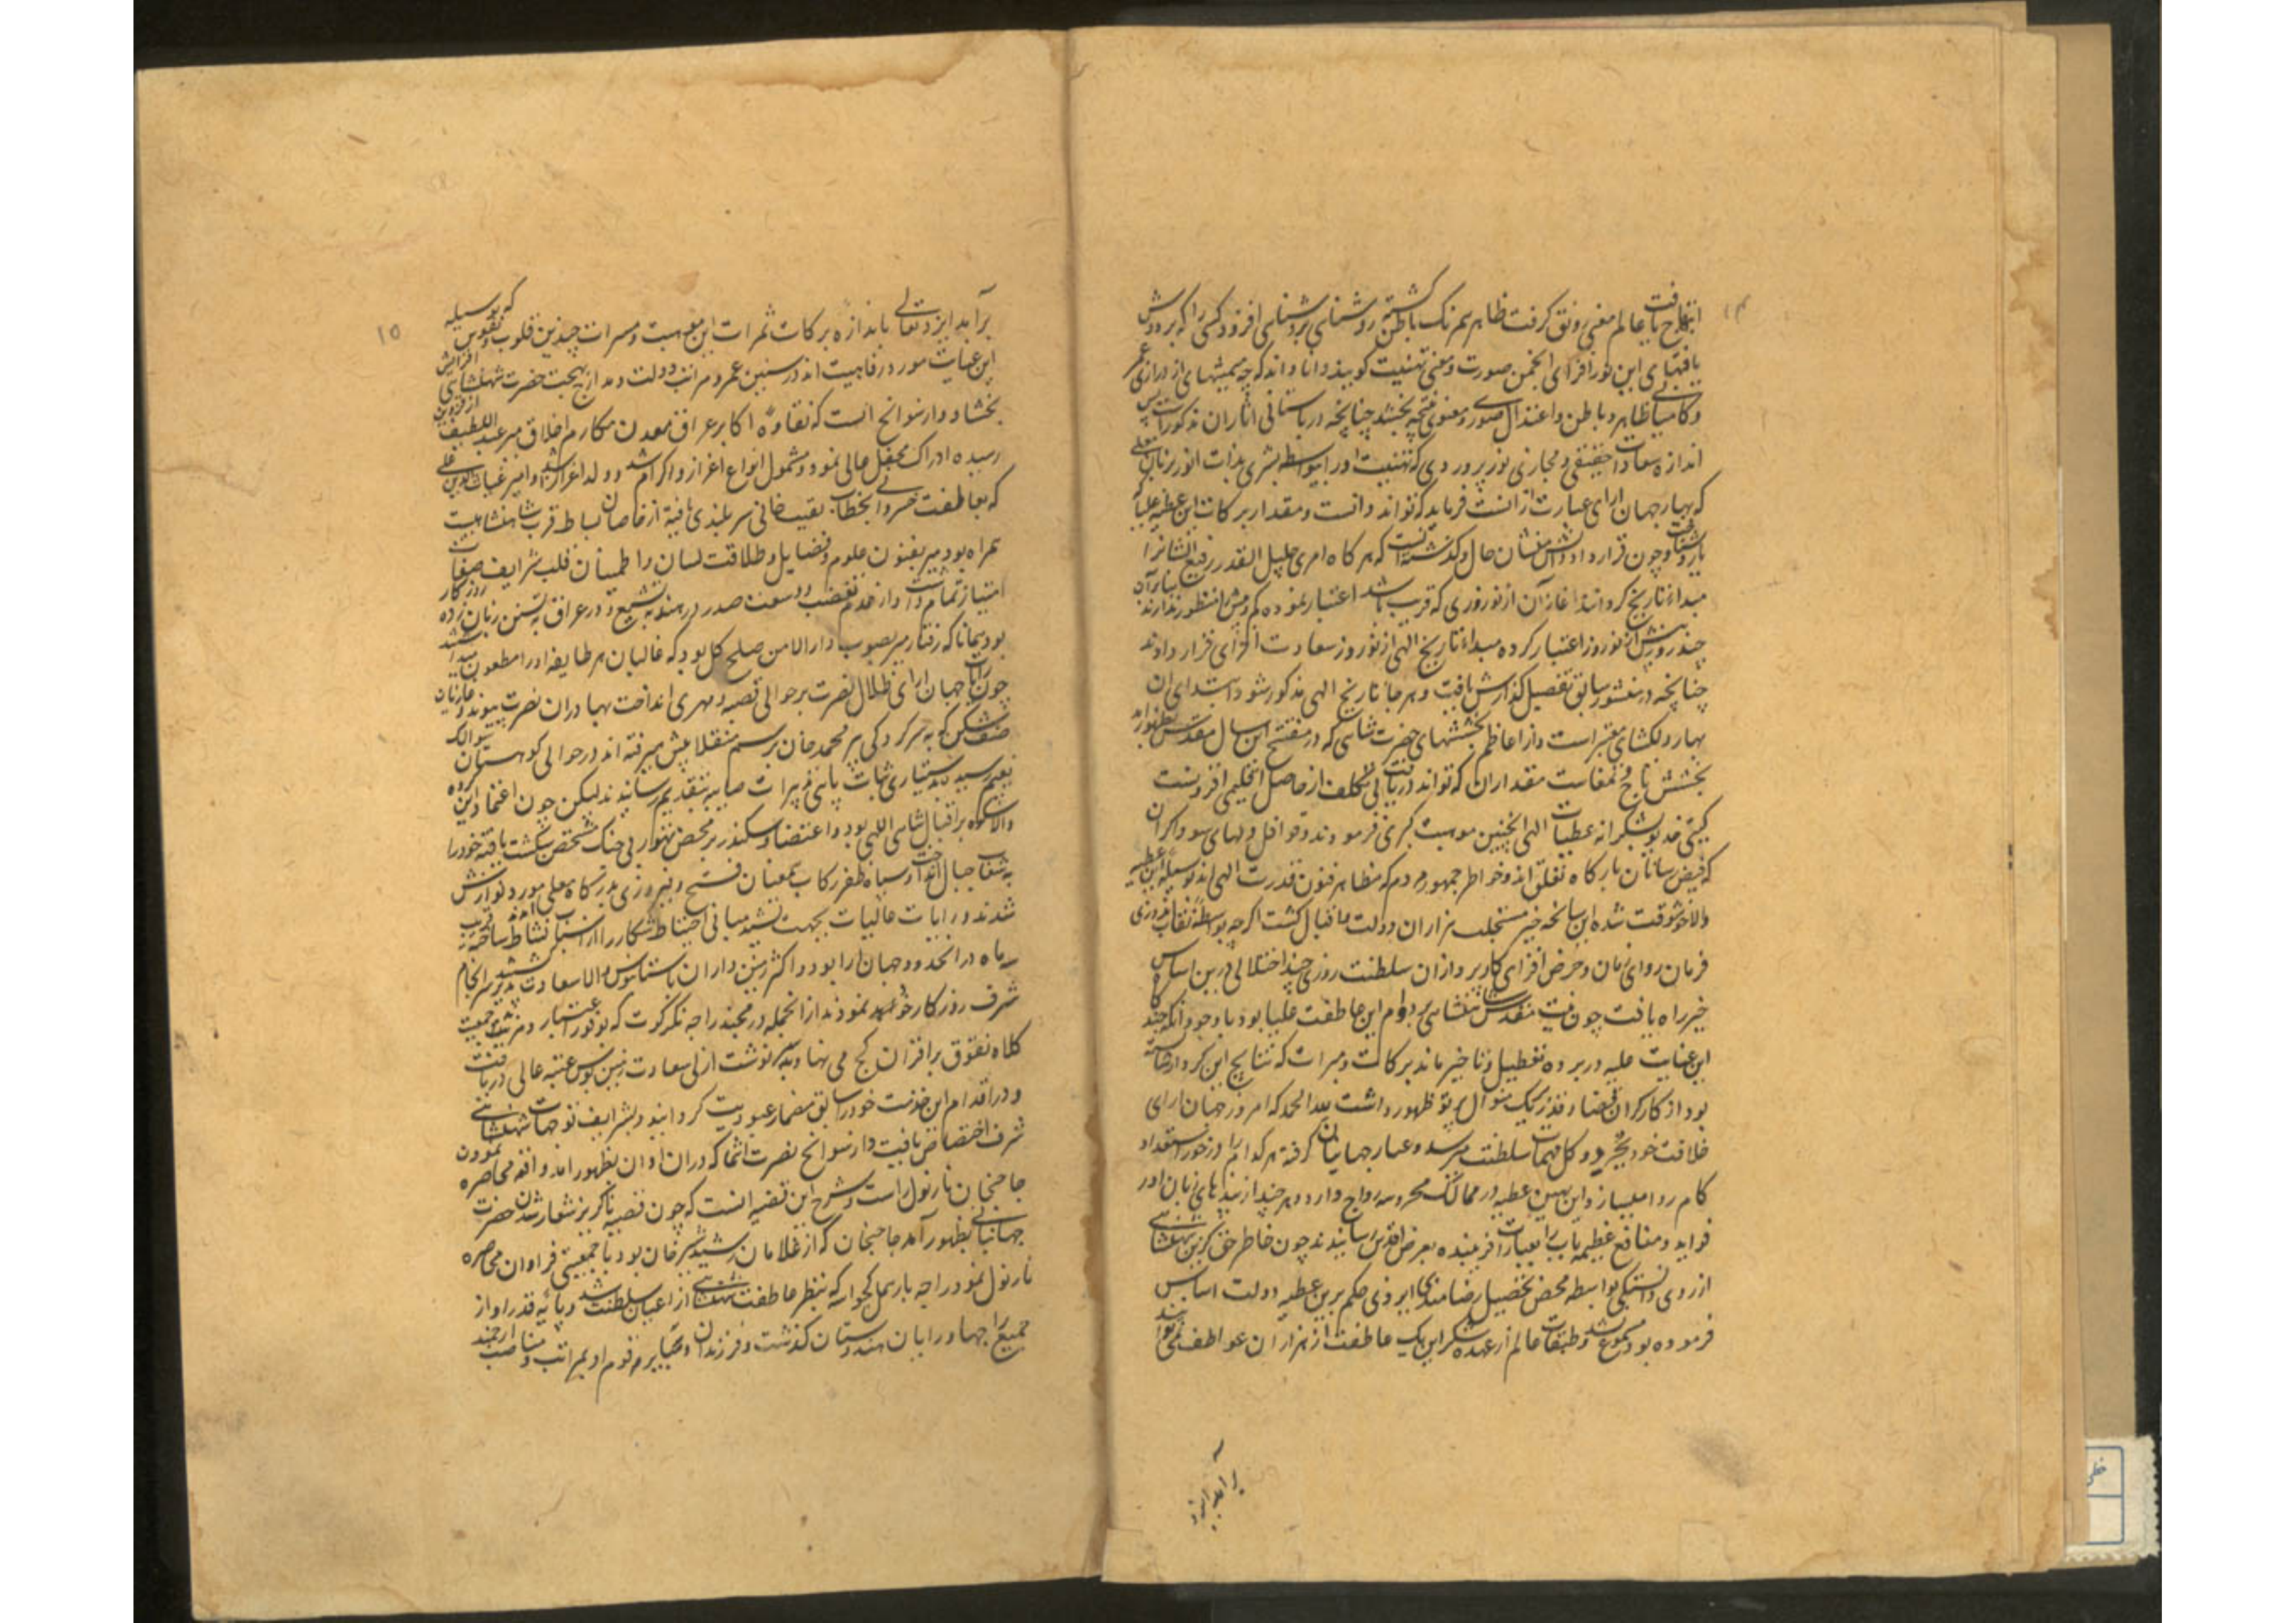 انتظاح یافت عالم معنی رونق گرفت ظاهر همرنگ باطن گشته روشنای بروشنای افزود کسی را که پرورش
یافتهای این نور افزای انجمن صورت و معنی تهنیت گویند دانا داند که چه میمنتهای از درازی عمر
و کامیابی ظاهر و باطن و اعتدال صوری و معنوی نتیجه بخشد چنانچه در باستانی اثار ان مذکورست پس
اندازه سعادت حقیقی و مجازی نور پروردی که تهنیت او را بیواسطه بشری بذات انور بزبان
که بهار جهان ارای عبارت از انست فرماید که تواند دانست و مقدار برکات این عطیه علیا که
یارد شناخت و چون قرارداد دانش منشان حال و گذشته است که هر گاه امری جلیل القدر رفیع الشان را
مبداء تاریخ گردانند اغاز آن از نوروزی که قریب باشد اعتبار نموده کم و بیش منظور ندارند بنابران
چند روز پیش از نوروز اعتبار کرده مبداء تاریخ الهی از نوروز سعادت افزای قرار دادند
چنانچه در منشور سابق تفصیل گذارش یافت و هر جا تاریخ الهی مذکور شود ابتدای ان
بهار دلکشای معتبر است و از اعاظم بخششهای حضرت شاهنشاهی که در مفتتح این سال مقدس بظهور امد
بخشش باج و تمغاست مقدار ان که تواند دریافت بی تکلف از حاصل اقلیمی افزونست
گیتی خدیو بشکرانه عطیات الهی اینچنین موهبت کبری فرمودند و قوافل دلهای سوداگران
که فیض رسانان بارگاه تعلق اند و خواطر جمهور مردم که مظاهر فنون قدرت الهی اند بوسیله این عطیه
والا خوشوقت شده این سانحه خیر مستجلب هزاران دولت و اقبال گشت اگرچه بواسطه نقاب گزینی
فرمان روای زمان و حرص افزای کارپردازان سلطنت روزی چند اختلالی درین اساس
خیر راه یافت چون نیت مقدس شاهنشاهی بر دوام این عاطفت علیا بود با وجود انکه چندگاه
این عنایت علیه در پرده تعطیل و تاخیر ماند برکات و میرات که نتایج این کردار شایسته
بود از کارکران قضا و قدر بیک منوال پرتو ظهور داشت لله الحمد که امروز جهان ارای
خلافت خود بجزو و کل مهمات سلطنت میرسد و عیار جهانیان گرفته هر کدام را در خور استعداد
کام روا میسازد این بهین عطیه در ممالک محروسه رواج دارد و هر چند از بیدپایی زبان اور
فواید و منافع عظیمه این باب را بعبارات فریبنده بعرض اقدس رسانیدند چون خاطر حق گزین شاهنشاهی
از روی دلبستگی بواسطه محض تحصیل رضامندی ایزدی حکم برین عطیه دولت اساس
فرموده بود مسموع نشد و طبقات عالم از عهده شکر این یک عاطفت از هزاران عواطف نمی توانند
برآمد ایزد
برآمد ایزد تعالی باندازه برکات ثمرات این موهبت و مسرات چندین قلوب و نفوس که بوسیله
این عنایت مورد رفاهیت اند در سنین عمر و مراتب دولت و مدارج بهجت حضرت شاهنشاهی افزایش
بخشاد و از سوانح انست که نقاوه اکابر عراق معدن مکارم اخلاق میر عبد اللطیف از قزوین
رسیده ادراک محفل عالی نمود و مشمول انواع اعزاز و اکرام شد و ولد اعز ارشد او امیر غیاث الدین علی
که بعاطفت خسروانی بخطاب نقیب خانی سربلندی یافته از خاصان بساط قرب شاهنشاهیست
همراه بود میر بفنون علوم و فضایل و طلاقت لسان و اطمینان قلب و شرایف صفات
امتیاز تمام داشت و از عدم تعصب و وسعت صدر در هند به تشیع و در عراق به تسنن زبان زده روزگار
بود همانا که رفتار میر بصوب دارالامن صلح کل بود که غالیان هر طایفه او را مطعون میداشتند
چون رایات جهان ارای ظلال نصرت بر حوالی قصبه دمهری انداخت بهادران نصرت پیوند و غازیان
صف شکن که به سرکردگی پیر محمد خان برسم منقلا پیش میرفته اند در حوالی کوهستان سوالک
بغنیم رسیده بدستیاری ثبات پای مبرات صایبه بتقدیم رسانیدند لیکن چون اعتماد این گروه
والا شکوه بر اقبال شاهنشاهی بود و اعتضاد سکندر بر محض تهور بی جنگ مشخص شکست یافته خود را
به شعاب جبال انداخت و سپاه ظفر رکاب بعنان فتح و فیروزی بدرگاه معلی امده مورد نوازش
شدند و رایات عالیات بجهت تشیید مبانی احتیاط شکار را از اسباب نشاط ساخته قریب
سه ماه در انحدود جهان ارا بود و اکثر زمین داران باستانبوس والا سعادت پذیر شده سرانجام
شرف روزگار خود نمودند از انجمله رامچند راجه نگرکوت که بوفور اعتبار و مزید جمعیت
کلاه تفوق بر اقران کج می نهاد به سرنوشت ازلی سعادت زمین بوس عتبه عالی دریافت
و در اقدام این خدمت خود را سابق مضمار عبودیت گردانید و بشرایف توجهات شاهنشاهی
شرف اختصاص یافت و از سوانح نصرت انتما که دران اوان بظهور امد واقعه محاصره نمودن
حاجیخان نارنول راست و شرح این قضیه انست که چون قضیه ناگزیر شنقار شدن حضرت
جهانبانی بظهور آمد حاجیخان که از غلامان رشید شیرخان بود با جمعیتی فراوان محاصره
نارنول نمود راجه بارهمل کچواهه که بنظر عاطفت شاهنشاهی از اعیان سلطنت شد و پایه قدر او از
جمیع راجها و رایان هندوستان گذشت و فرزندان و نبایر و قوم او بمراتب و مناصب ارجمند
۱۵
۱۴
خطی